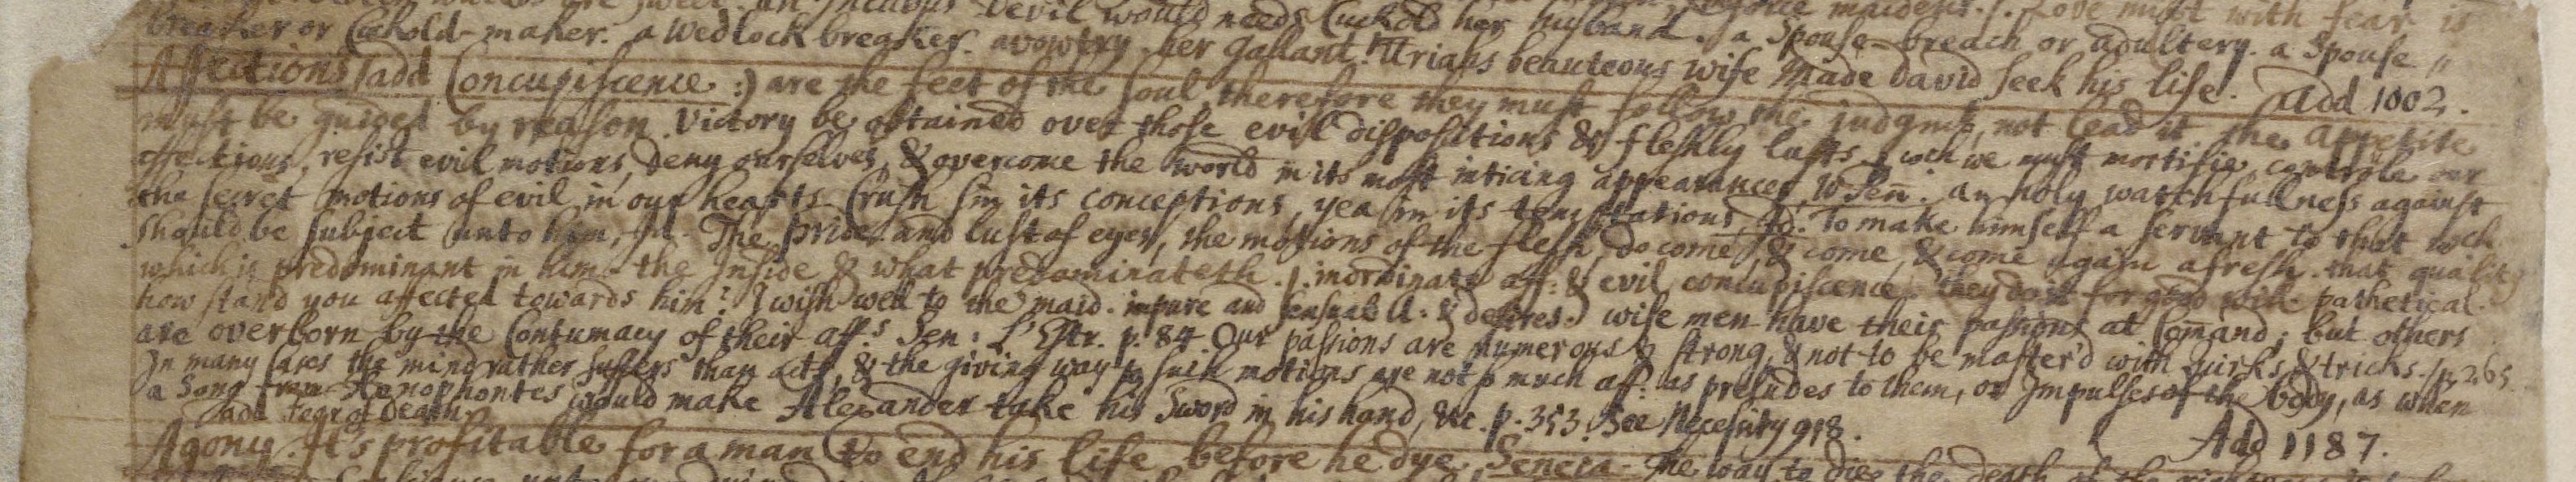 waters are sweet. an Incubus Devil would needs Cuckold her husband. enforce maidens. Love mixt with fear is
breaker or Cuckold-maker. a Wedlock breaker. avowtry. her Gallant. Uriahs beauteous wife Made David seek his life. a Spouse-breach or adultery. a Spouse
Affections (add Concupiscence:) are the feet of the soul, therefore they must follow the judgmt, not lead it. Add 1002.
must be guided by reason. Victory be obtained over those evil dispositions & fleshly lusts wch we must mortifie, controle our the appetite
affections, resist evil motions, deny ourselves, & overcome the world in its most inticing appearances, W. Penn. an holy watchfullness against
the secret motions of evil in our hearts. Crush sin in its conceptions, yea in its temptations, Id. To make himself a servant to that wch
should be subject unto him, Id. The pride and lust of eyes, the motions of the flesh, do come, & come, & come again afresh. that quality
which is predominant in him. the Inside & what predominateth. inordinate aff: & evil concupiscence. they do it for good will. pathetical.
how stand you affected towards him? I wish well to the maid. impure and sensual A: & desires. wise men have their passions at Comand; but others
are overborn by the Contumacy of their aff.s Sen: L'Estr. p. 84 Our passions are numerous & strong, & not to be master'd with quirks & tricks. p. 265
In many Cases the mind rather suffers than acts, & the giving way to such motions are not so much aff: as preludes to them, or Impulses of the body, as when
a Song from Xenophontes would make Alexander take his Sword in his hand, &c. p. 353. See Necessity 918.
add fear of Death. Add 1187.
Agony. It's profitable for a man to end his life before he dye, Seneca. The way to die the death of the righteous is to